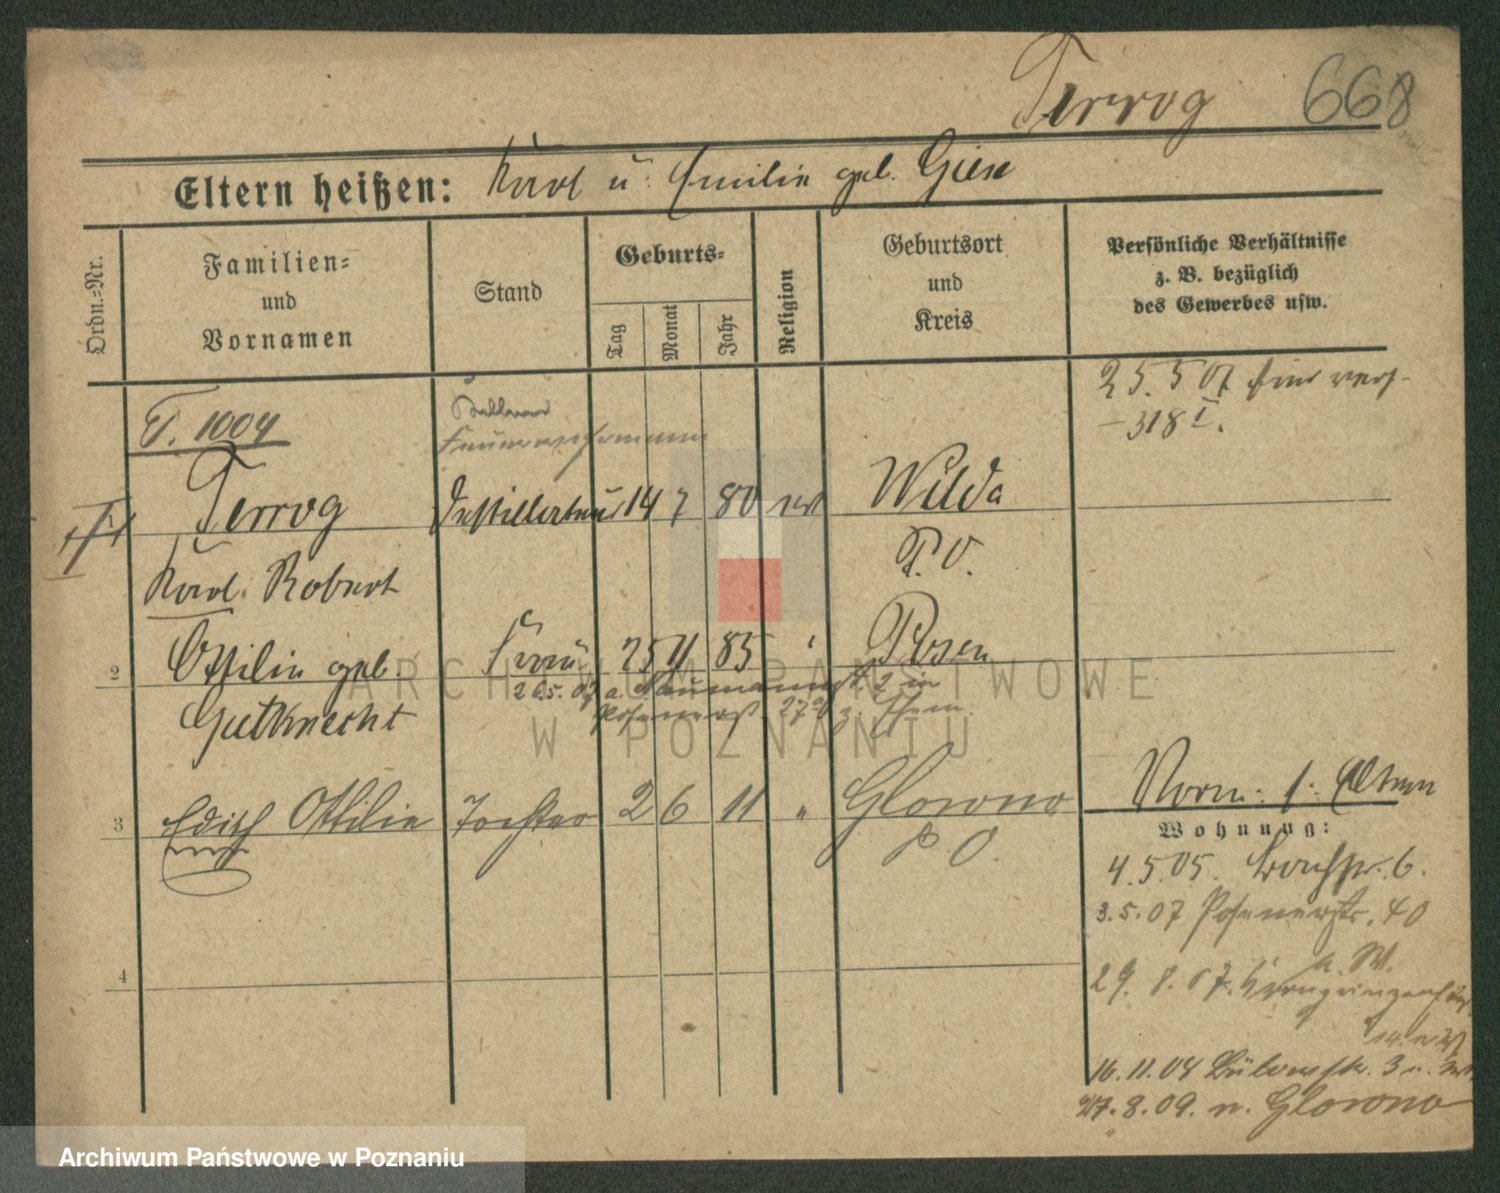 Terrog 668
Eltern heißen: Karl u. Emilie geb. Giese
Ordn.=Nr.
Familien=
und
Vornamen
Stand
Geburts=
Tag
Monat
Jahr
Religion
Geburtsort
und
Kreis
Persönliche Verhältnisse
z. B. bezüglich
des Gewerbes usw.
25.5 07
318 I.
T. 1004
Kellner
Feuerwehrmann
1 Terrog Destillateur 14 7 80 ev Wilda
Karl. Robert P. O.
2 Ottilie geb. Frau 25 11 85 " Posen
26.5.07 a. Naumannstr. 2 in
Gutknecht
3 Edith Ottilie Tochter 2 6 11 " Glowno
P. O.
4
Wohnung:
4.5.05. 6.
3.5.07 Posenerstr. 40
a. W.
29. 8. 07.
14. n. W
16.11.08 Bülowstr. 3
27.8.09. n. Glowno
ARCHIWUM PAŃSTWOWE
W POZNANIU
Archiwum Państwowe w Poznaniu